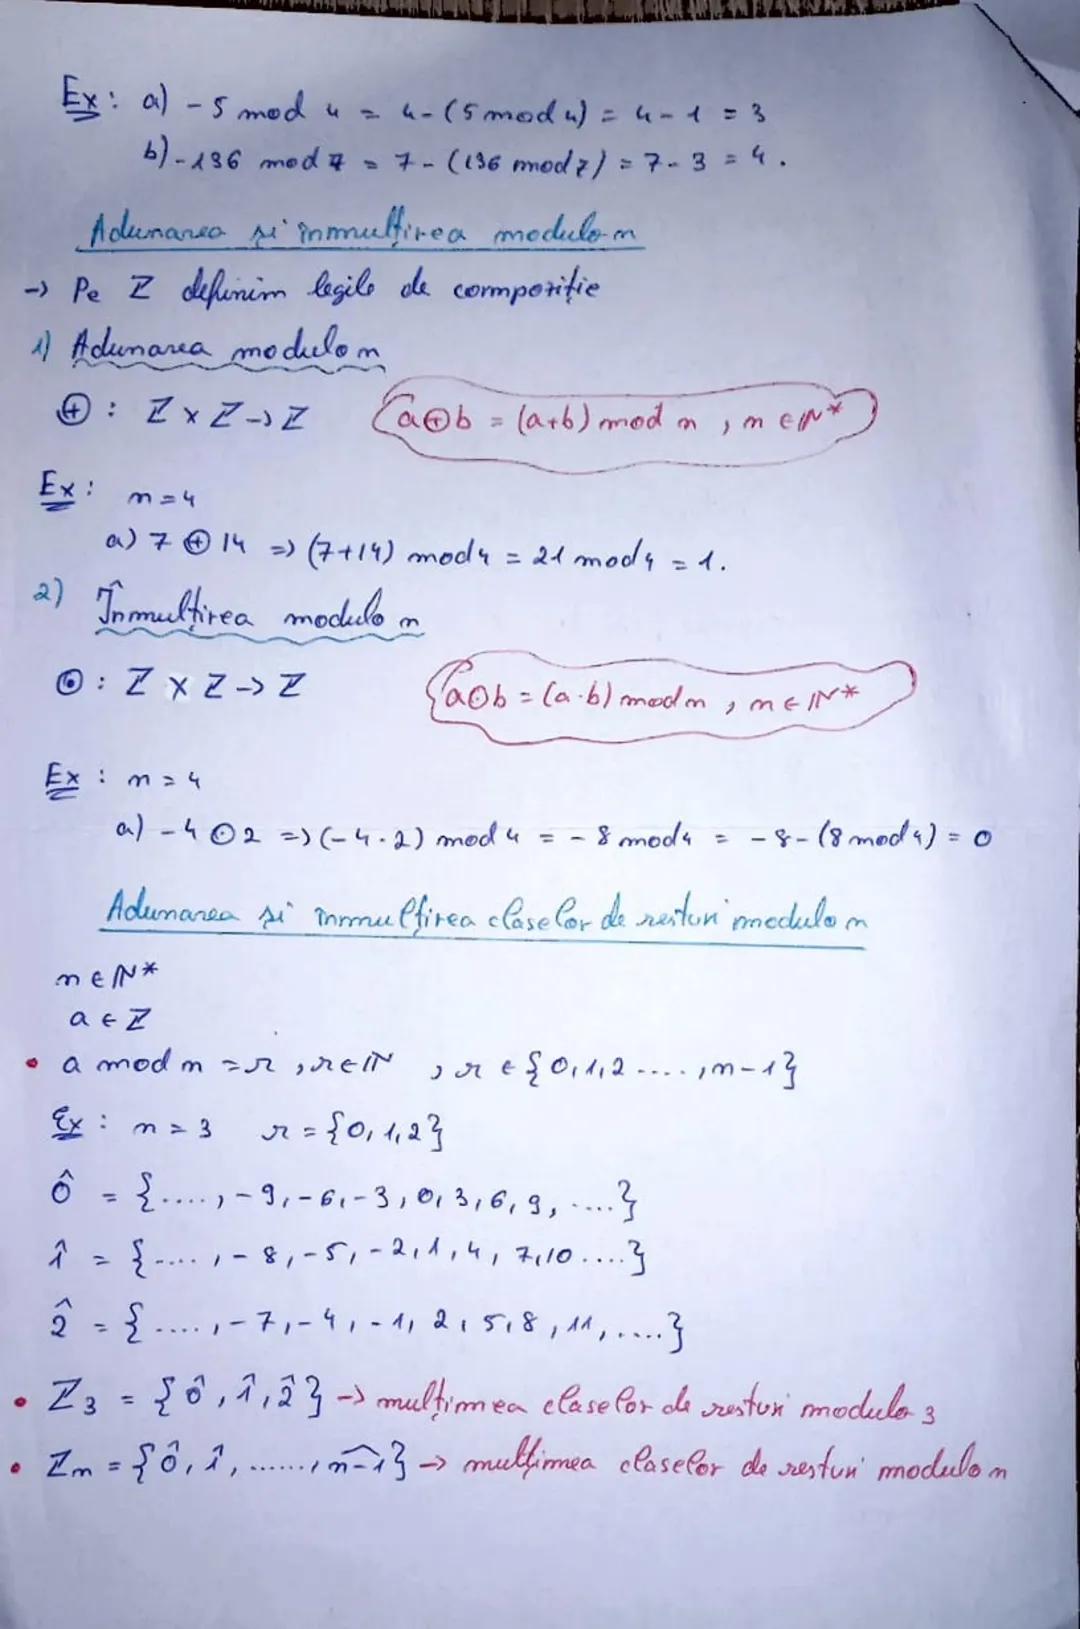 Ex: a) -5 mod 4 = 4-(5 mod 4) = 4-1 = 3
b) -136 mod 7 = 7-(136 mod 7) = 7-3 = 4.
Adunarea și înmulțirea modulo n
-> Pe Z definim legile de compoziție
1) Adunarea modulo n
⊕ : Z x Z -> Z a⊕b = (a+b) mod n , n ∈ N*
Ex: n=4
a) 7 ⊕ 14 => (7+14) mod 4 = 21 mod 4 = 1.
2) Înmulțirea modulo n
⊙ : Z x Z -> Z a⊙b = (a·b) mod n , n ∈ N*
Ex : n=4
a) -4 ⊙ 2 => (-4·2) mod 4 = -8 mod 4 = -8-(8 mod 4) = 0
Adunarea și înmulțirea claselor de resturi modulo n
n ∈ N*
a ∈ Z
• a mod n = r , r ∈ N , r ∈ {0,1,2 ...., n-1}
Ex : n=3 r = {0,1,2}
0̂ = {...., -9, -6, -3, 0, 3, 6, 9, ....}
1̂ = {...., -8, -5, -2, 1, 4, 7, 10 ....}
2̂ = {...., -7, -4, -1, 2, 5, 8, 11, ....}
• Z₃ = {0̂, 1̂, 2̂} -> mulțimea claselor de resturi modulo 3
• Zn = {0̂, 1̂, ......, n-1̂} -> mulțimea claselor de resturi modulo n